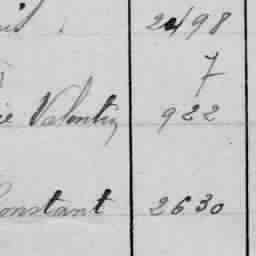 2498
7
Valentin 922
Constant 2630